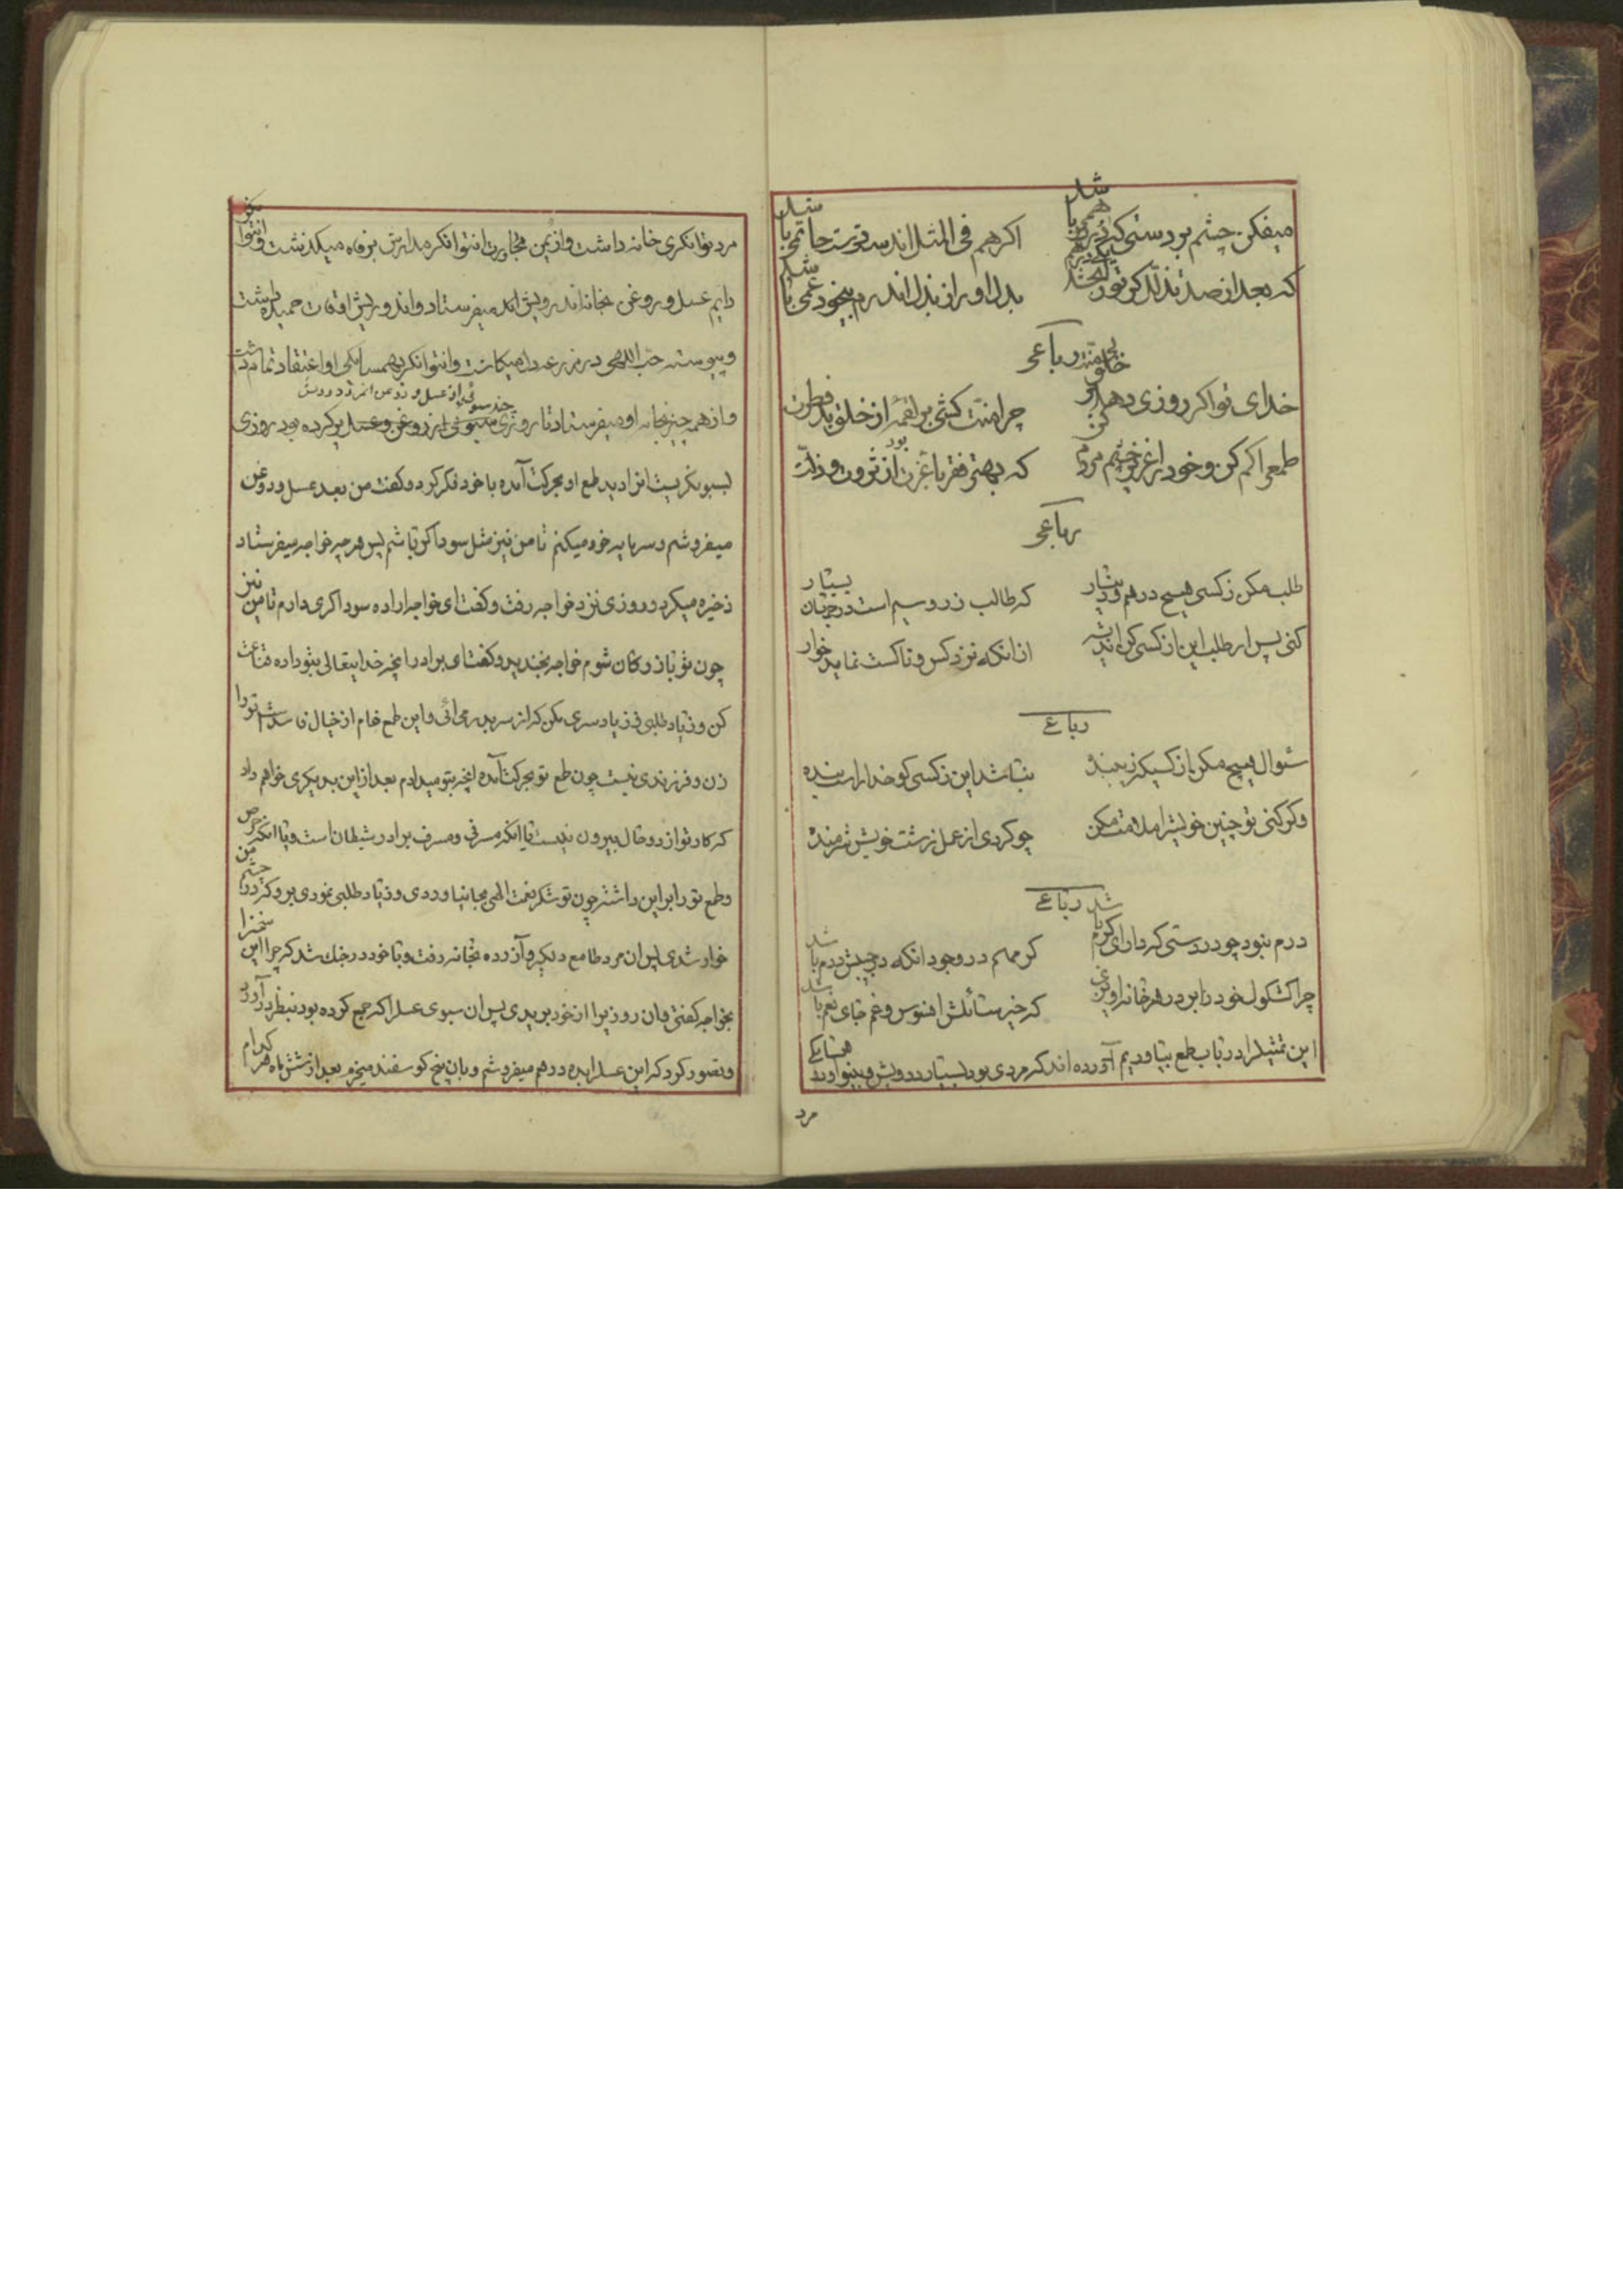 میفکن چشم بر دستی که در وی درهمی باشد
اگر هم فی المثل اندر سخاوت حاتمی باشد
که بعد از صد تذلل گر تو را بخشد
بدل او را از بذل اندرم بیخود غمی باشد
رباعی
خدای تو اگر روزی دهد
چرا منت کشی بر لقمه از خلق بد فطرت
طمع را کم کن و خود را عزیز چشم مردم کن
که بهتر فقر با عزت بود از ثروت و ذلت
رباعی
طلب مکن ز کسی هیچ درهم و دینار
که طالب زر و سیم است در جهان بسیار
کنی پس ار طلب این از کسی کن اندیشه
از آنکه نزد کس و ناکست نماید خوار
رباعی
سئوال هیچ مکن از کسیکه
نباشد این ز کسی کو خدایراست بنده
وگر کنی تو چنین خویشرا ملامت مکن
چو کردی از عمل زشت خویش شرمنده
رباعی
درم نبود چو در دستی که دارای کرم باشد
کرم هم در وجود آنکه در جیبش درم باشد
چرا کشکول خود را بر در هر خانه آویزی
که خیر سائلش افسوس و غم جای نعم باشد
این تمثیل را در باب طمع بیاوردیم آورده اند که مردی بود بسیار درویش و بینوا و در همسایگی
مرد
مرد توانگری خانه داشت و از یمن مجاورت آن توانگر مدارش برفاه میگذشت و آن توانگر
دایم عسل و روغن بخانه آن درویش میفرستاد و آن درویش اوقات حمیده داشت
و پیوسته حب اللهی در مزرعه دل میکاشت و آن توانگر بهمسایگی او اعتقاد تمام داشت
و از همه چیز بخانه او میفرستاد تا روزی سبوئی از روغن و عسل پر کرده بود روزی
بسبو نگریست آنرا دید طمع او بحرکت آمده با خود فکر کرد و گفت من بعد عسل و روغن
میفروشم و سرمایه خود میکنم تا من نیز مثل سوداگر باشم پس هر چه خواجه میفرستاد
ذخیره میکرد و روزی نزد خواجه رفت و گفت ای خواجه اراده سوداگری دارم تا من نیز
چون تو بازرگان شوم خواجه بخندید و گفت ای برادر آنچه خدایتعالی بتو داده قناعت
کن و زیاد طلبی و زیاد سری مکن که از سر بدر می آئی و این طمع خام از خیال فاسدست تو را
زن و فرزندی نیست چون طمع تو بحرکت آمده آنچه بتو میدادم بعد از این بدیگری خواهم داد
که کار تو از دو حال بیرون نیست یا آنکه مسرفی و مسرف برادر شیطان است و یا آنکه حرص
و طمع تو را بر این داشته چون تو شکر نعمت الهی بجا نیاوردی و زیاد طلبی نمودی برو که در چشم من
خوار شدی پس آن مرد طامع دلگیر و آزرده بخانه رفت و با خود در جنگ شد که چرا این سخن را
بخواجه گفتی و نان روزی را از خود بریدی پس آن سبوی عسل را که جمع کرده بود بنظر در آورد
و تصور کرد که این عسل را بده درهم میفروشم و بآن پنج گوسفند میخرم بعد از شش ماه هر کدام